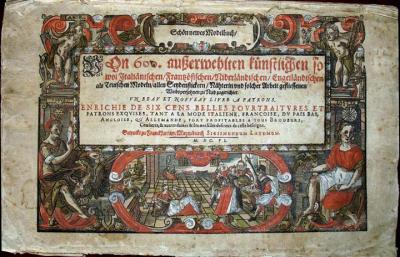 Schön newes Modelbuch/
Von 600. außerwehlten künstlichen so
wol Italiänischen/ Frantzösischen/ Niderländischen/ Engelländischen/
als Teutschen Modeln/ allen Seydenstickern/ Nähterin und solcher Arbeit geflissenen
VN BEAV ET NOVVEAV LIVRE A PATRONS,
ENRICHIE DE SIX CENS BELLES POVRTRAITVRES ET
PATRONS EXQVISES, TANT A LA MODE ITALIENE, FRANCOISE, DV PAIS BAS,
ANGLOISE, QV'ALLEMANDE, FORT PROFITABLES A TOVS BRODEVRS,
SIGISMVNDVM LATOMVM.